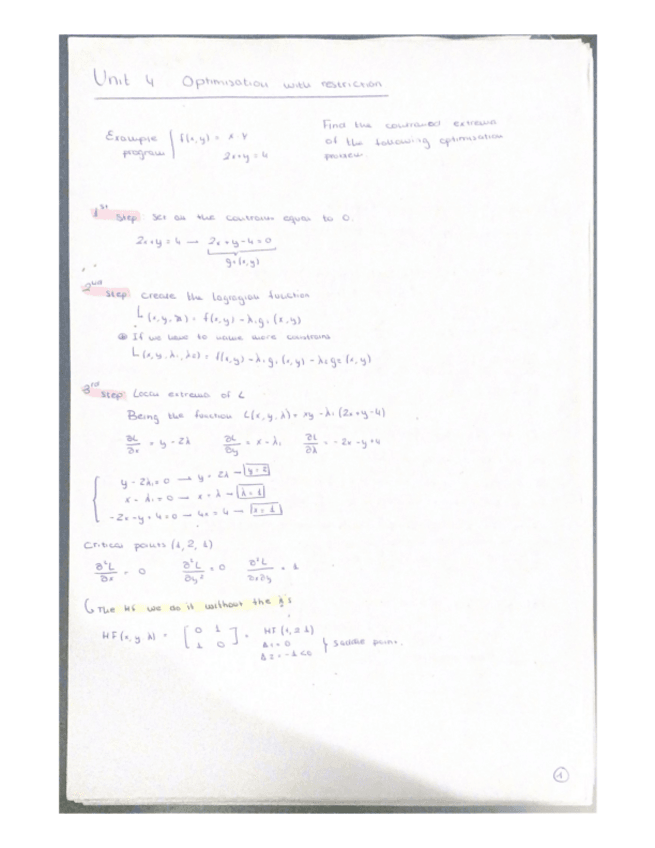 Unit 4 Optimization with restriction
Example f(x,y) = x·y
program 2x+y = 4
Find the constrained extrema
of the following optimization
problem
1st Step Set all the constrains equals to 0.
2x+y=4 → 2x+y-4=0
g1(x,y)
2nd Step Create the Lagragian function
L(x,y,λ) = f(x,y) - λ1g1(x,y)
If we have to value more constrains
L(x,y,λ1,λ2) = f(x,y) - λ1g1(x,y) - λ2g2(x,y)
3rd Step Local extrema of L
Being the function L(x,y,λ) = xy - λ1(2x+y-4)
∂L/∂x = y - 2λ ∂L/∂y = x - λ1 ∂L/∂λ = -2x-y+4
y - 2λ1 = 0 → y = 2λ → y=2
x - λ1 = 0 → x = λ → λ=1
-2x-y+4=0 → 4x=4 → x=1
Critical points (1,2,1)
∂²L/∂x = 0 ∂²L/∂y² = 0 ∂²L/∂x∂y = 1
The Hf we do it without the λ's
Hf(x,y,λ) = [0 1
1 0] = Hf(1,2,1)
Δ1=0
Δ2=-1<0 } saddle point.
1